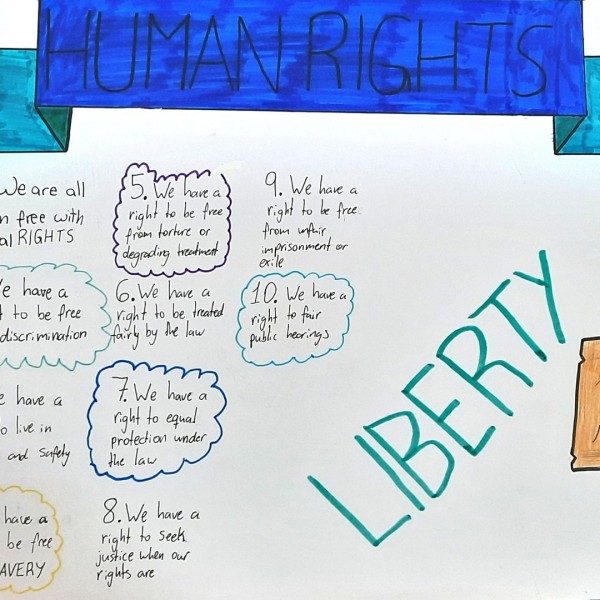 HUMAN RIGHTS
We are all
n free with
al RIGHTS
e have a
t to be free
discrimination
e have a
o live in
and safety
have a
be free
AVERY
5. We have a
right to be free
from torture or
degrading treatment
6. We have a
right to be treated
fairly by the law
7. We have a
right to equal
protection under
the law
8. We have a
right to seek
justice when our
rights are
9. We have a
right to be free
from unfair
imprisonment or
exile
10. We have a
right to fair
public hearings
LIBERTY